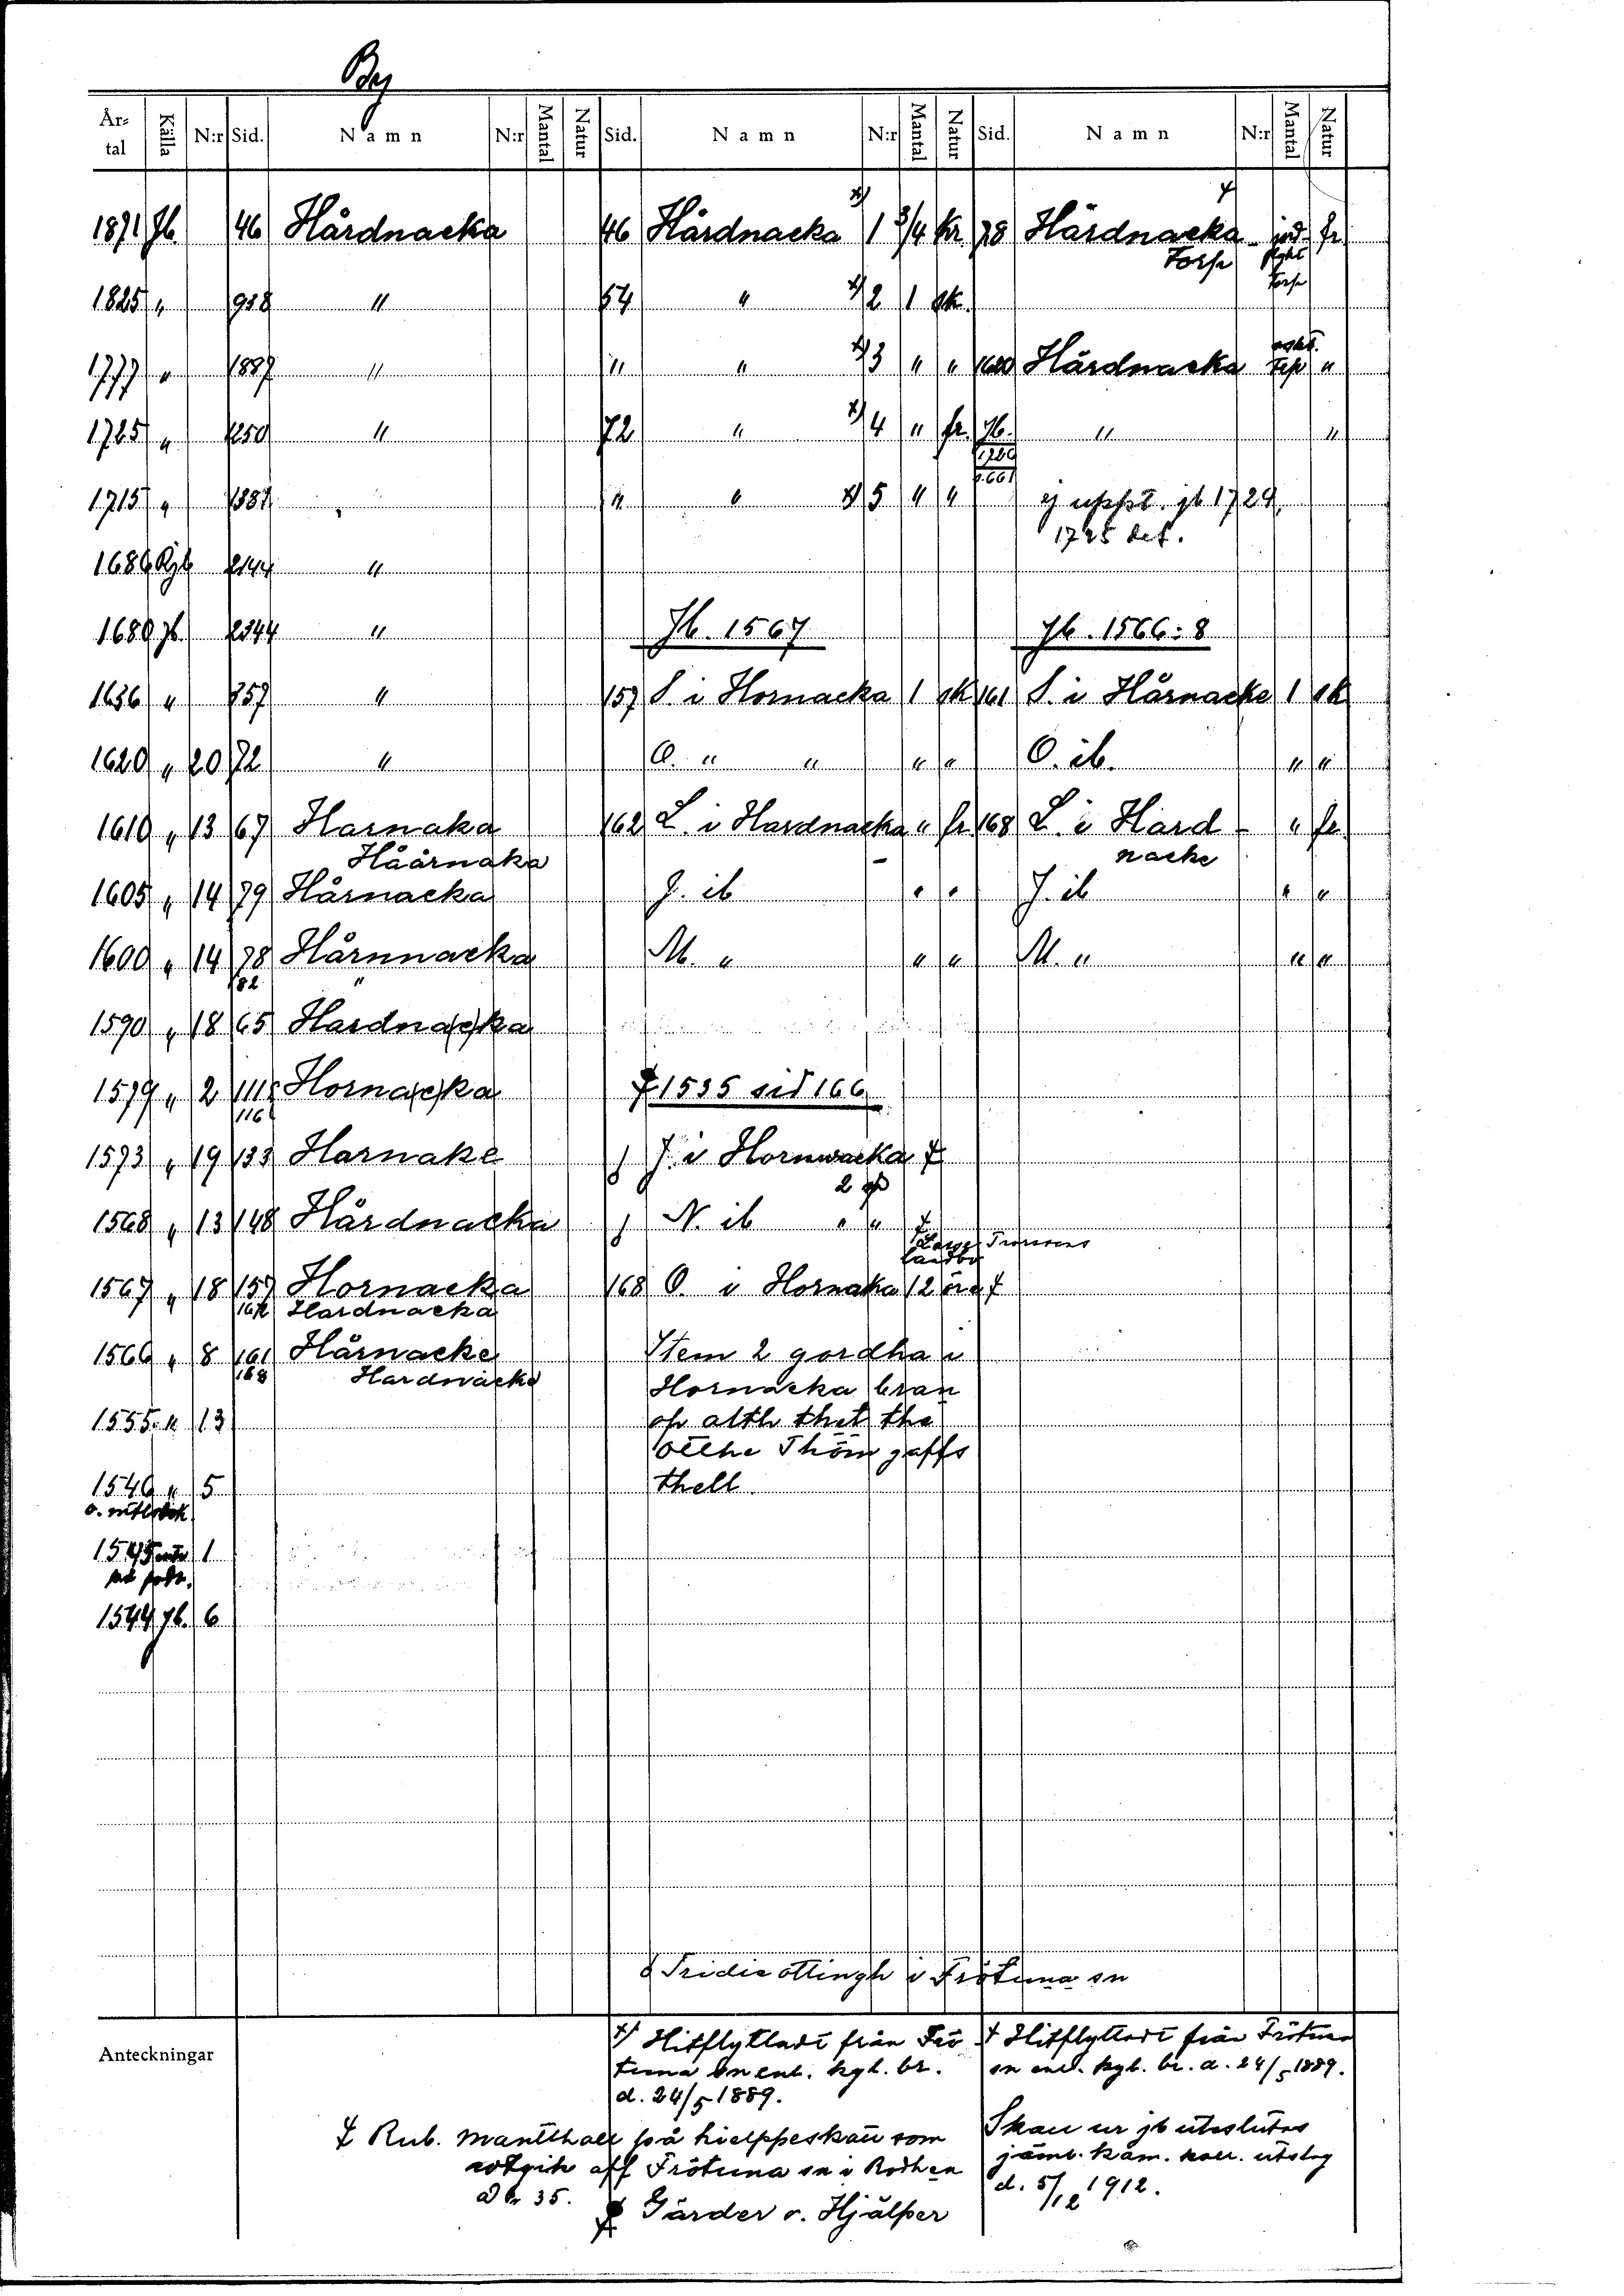 By
År-tal Källa N:r Sid. Namn N:r Mantal Natur Sid. Namn N:r Mantal Natur Sid. Namn N:r Mantal Natur
1871 Jb. 46 Hårdnacka 46 Hårdnacka x) 1 3/4 kr 78 Hårdnacka fr
Torp
1825 " 938 " 54 " x) 2 1 sk.
1777 " 1887 " " " x) 3 " " 1620 Hårdnacka "
1725 " 1250 " 72 " x) 4 " fr. Jb. " "
1715 " 1387 " " x) 5 " " ej uppt. jb 1729,
1725 def.
1686 Rjb 2144 "
1680 Jb. 2344 " Jb. 1567 Jb. 1566:8
1636 " 757 " 157 S. i Hornacka 1 sk 161 S. i Hårnacke 1 sk
1620 " 20 72 " O. " " " " O. ib. " "
1610 " 13 67 Harnaka 162 L. i Hardnacka " fr 168 L. i Hard- " fr.
Håårnaka nacke
1605 " 14 79 Hårnacka J. ib " " J. ib " "
1600 " 14 78 Hårnnacka M. " " " M. " " "
82 "
1590 " 18 65 Hardna(c)ka
1579 " 2 111 Horna(c)ka 1535 sid 166
116
1573 " 19 133 Harnake J. i Hornwacka
2
1568 " 13 148 Hårdnacka N. ib " "
landbo
1567 " 18 157 Hornacka 168 O. i Hornaka 12 öre
162 Hardnacka
1566 " 8 161 Hårnacke Item 2 gordha i
168 Hardnacke Hornacka bran
1555 " 13 op alth thet the
otthe Thöm gaffs
1546 " 5 thell
1545 1
1544 Jb. 6
Tridie ottingh i Frötuna sn
Anteckningar
x) Hitflyttadt från Frö
tuna sn enl. kgl. br.
d. 24/5 1889.
Hitflyttadt från Frötuna
sn enl. kgl. br. d. 24/5 1889.
Skall ur jb uteslutas
jäml. kam. koll. utslag
d. 5/12 1912.
Rub. Mantthall på hielppeskatt som
aff Frötuna sn i Rodhen
35.
Gärder o. Hjälper